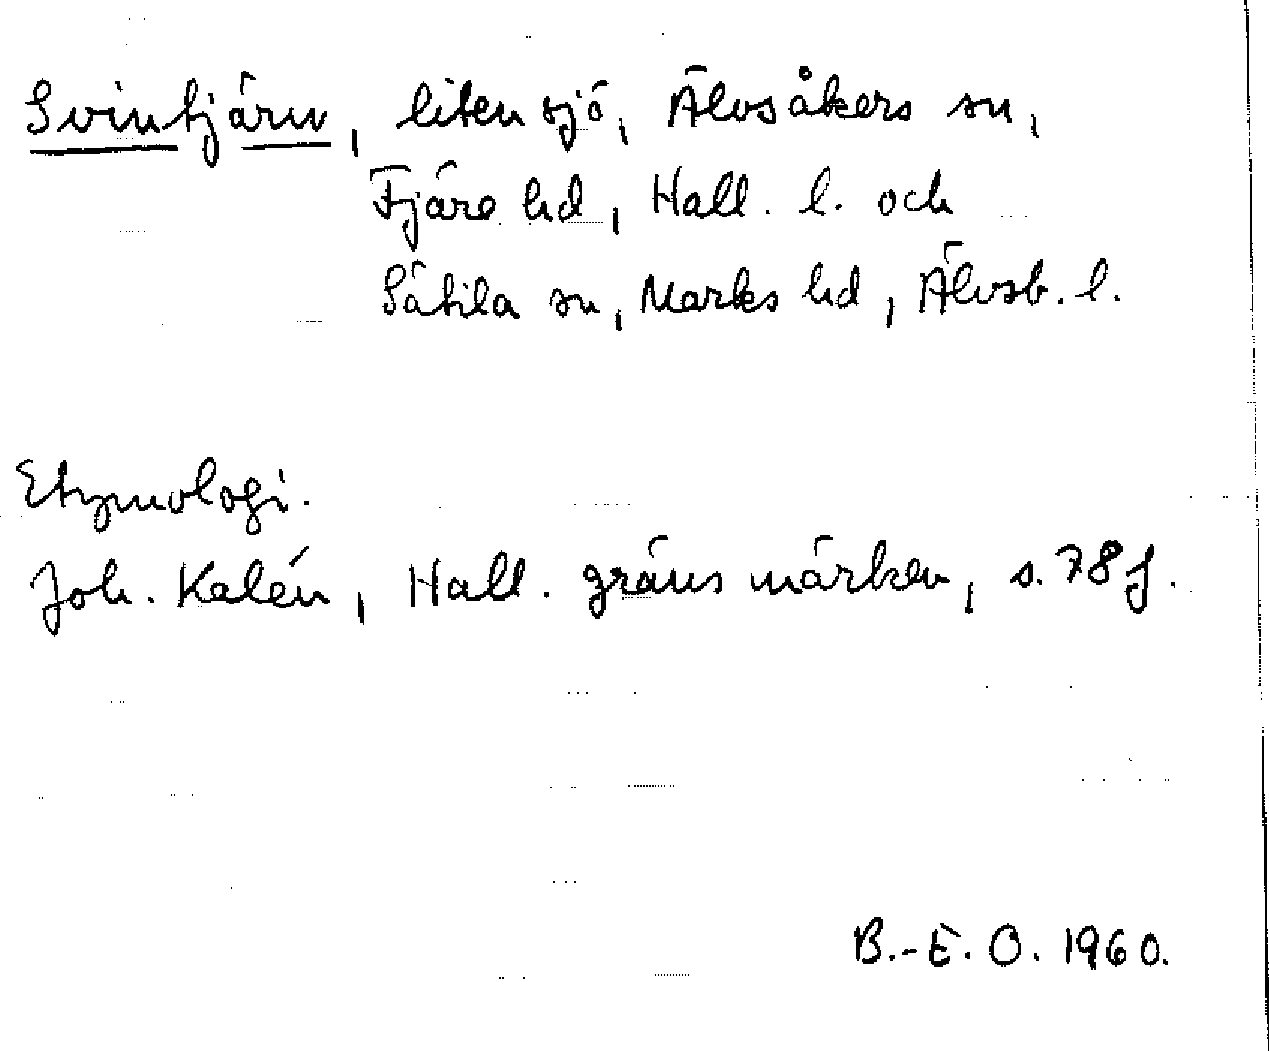 Svintjärn, liten sjö, Älvsåkers sn,
Fjäre hd, Hall. l. och
Sätila sn, Marks hd, Älvsb. l.
Etymologi.
Joh. Kalén, Hall. gränsmärken, s. 78 f.
B.-E. O. 1960.